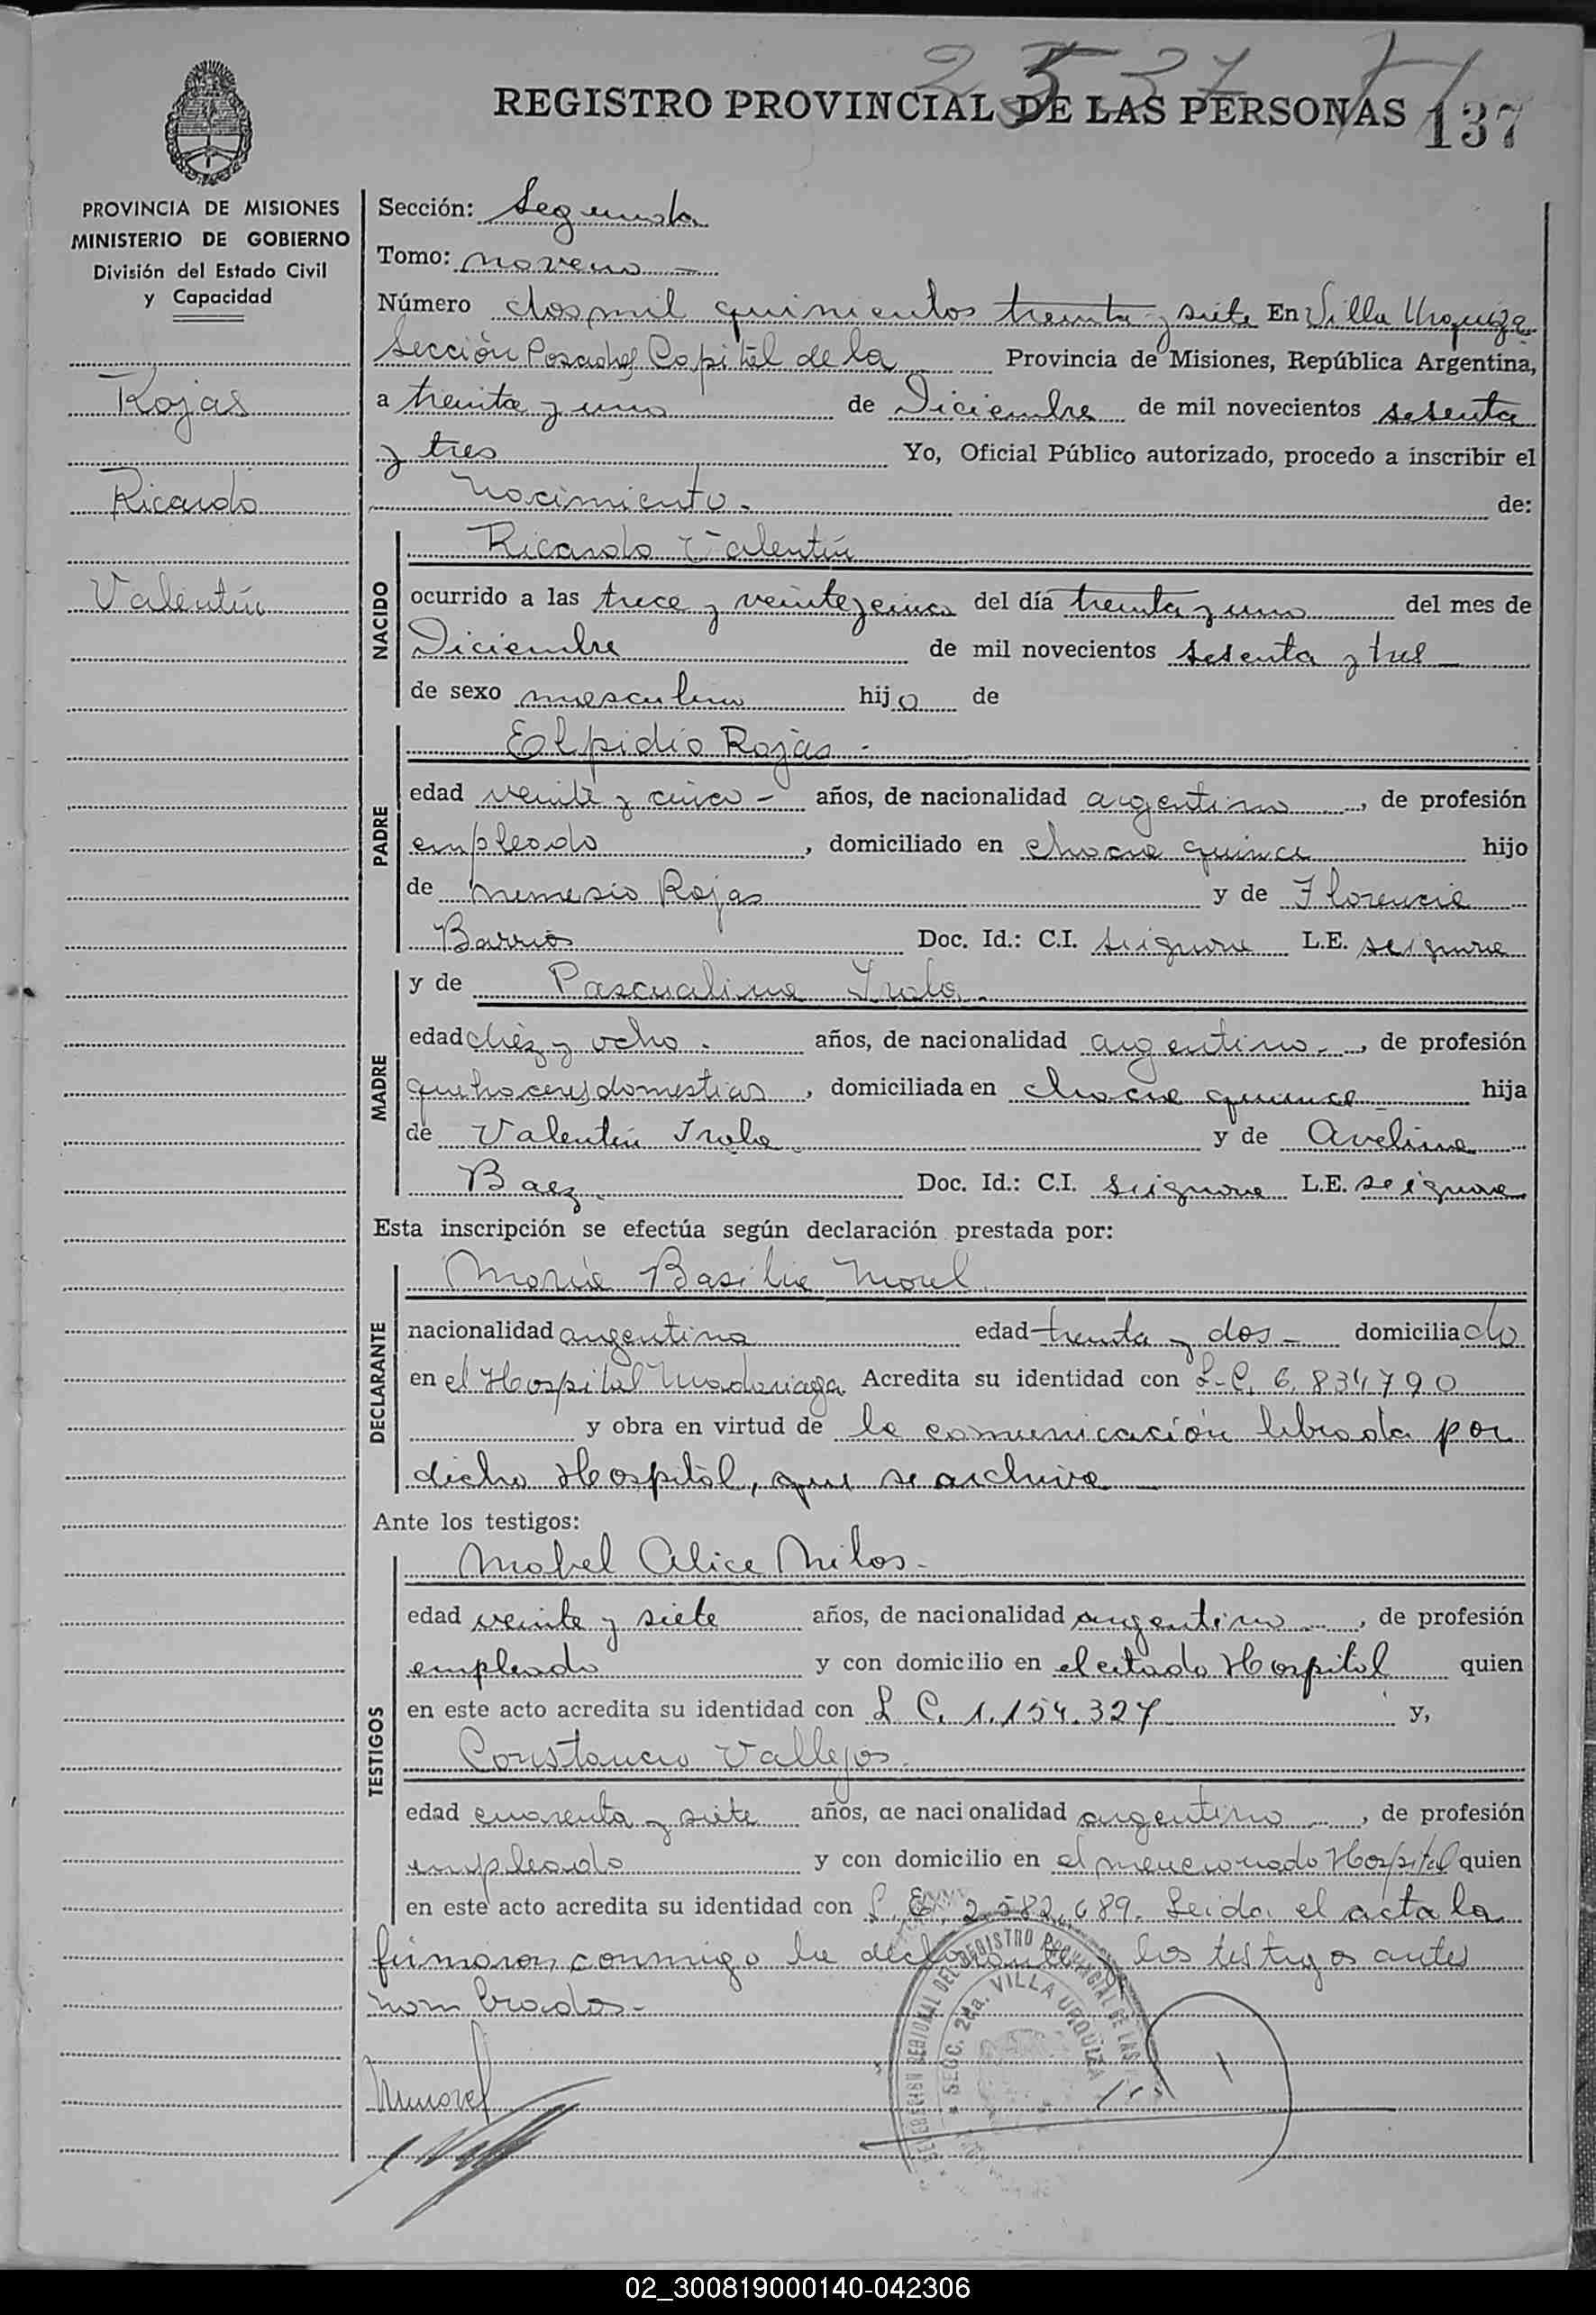 2537
REGISTRO PROVINCIAL DE LAS PERSONAS 137
PROVINCIA DE MISIONES
MINISTERIO DE GOBIERNO
División del Estado Civil
y Capacidad
Rojas
Ricardo
Valentín
Sección: Segunda
Tomo: noveno
Número dos mil quinientos treinta y siete En Villa Urquiza
Sección Posadas Capital de la Provincia de Misiones, República Argentina,
a treinta y uno de Diciembre de mil novecientos sesenta
y tres Yo, Oficial Público autorizado, procedo a inscribir el
Nacimiento.- de:
NACIDO
Ricardo Valentín
ocurrido a las trece y veinte y cinco del día treinta y uno del mes de
Diciembre de mil novecientos sesenta y tres
de sexo masculino hijo de
PADRE
Elpidio Rojas.-
edad veinte y cinco - años, de nacionalidad argentino, de profesión
empleado, domiciliado en chacra quince hijo
de Nemesio Rojas y de Florencia
Barrios Doc. Id.: C.I. se ignora L.E. se ignora
MADRE
y de Pascualina Irala.
edad diez y ocho.- años, de nacionalidad argentina, de profesión
quehaceres domesticos, domiciliada en chacra quince hija
de Valentín Irala y de Avelina
Baez Doc. Id.: C.I. se ignora L.E. se ignora
Esta inscripción se efectúa según declaración prestada por:
DECLARANTE
María Basilia Morel
nacionalidad argentina edad treinta y dos - domiciliado
en el Hospital Madariaga Acredita su identidad con L.C. 6.834790
y obra en virtud de la comunicación librada por
dicho Hospital, que se archiva
Ante los testigos:
TESTIGOS
Mabel Alice Milos-
edad veinte y siete años, de nacionalidad argentina, de profesión
empleada y con domicilio en el citado Hospital quien
en este acto acredita su identidad con L.C. 1.154.327 y,
Constancio Vallejos.
edad cuarenta y siete años, de nacionalidad argentino, de profesión
empleado y con domicilio en el mencionado Hospital quien
en este acto acredita su identidad con L.E. 2.582.689. Leida el acta la
firmaron conmigo la declarante y los testigos antes
nombrados.-
REGIONAL DEL REGISTRO PROVINCIAL DE LAS
SECC. 2da. VILLA URQUIZA
Mmorel
02_300819000140-042306